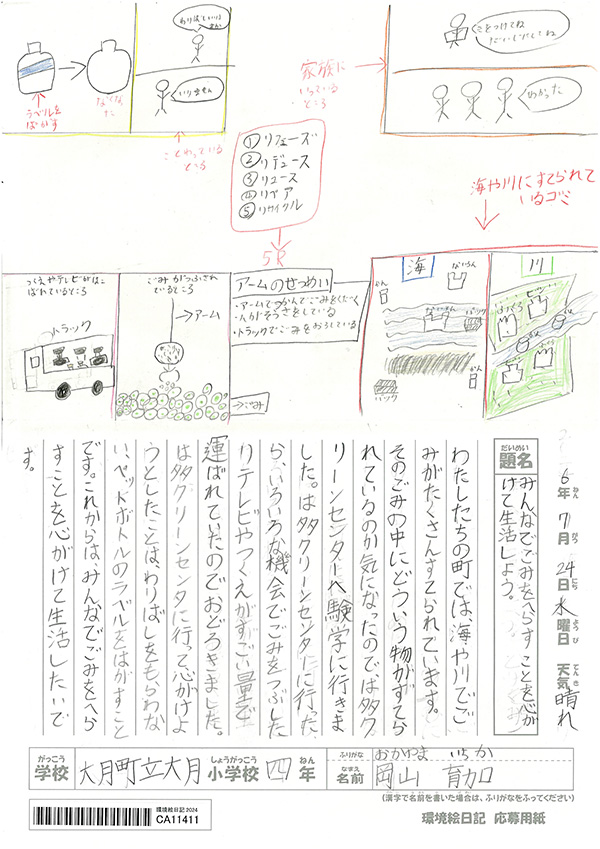 わりばしいりませんか
いりません
ラベルを
はがす
なくなった
ことわっている
ところ
家族に
いっている
ところ
きをつけてね
だいじにしてね
わかった
①リフューズ
②リデュース
③リユース
④リペア
⑤リサイクル
5R
海や川にすてられて
いるゴミ
つくえやテレビがはこ
ばれているところ
トラック
ごみがつぶされ
ているところ
アーム
ごみ
アームのせつめい
・アームでつかんでごみをくだく
・人がそうさをしている
・トラックでごみをおろしている
海
かん
ないろん
パック
ないろん
かん
パック
川
ふくろ
ふくろ
6年7月24日水曜日 天気晴れ
ねん がつ にち ようび てんき
だいめい
題名
みんなでごみをへらすことを心が
けて生活しよう。
わたしたちの町では、海や川でご
みがたくさんすてられています。
そのごみの中にどういう物がすてら
れているのか気になったのではタク
リーンセンターへ験学に行きま
した。は多クリーンセンタに行った
ら、いろいろな機会でごみをつぶした
りテレビやつくえがすごい量で
運ばれていたのでおどろきました。
は多クリーンセンタに行って心がけよ
うとしたことは、わりばしをもらわな
い、ペットボトルのラベルをはがすこと
です。これからは、みんなでごみをへら
すことを心がけて生活したいで
す。
がっこう しょうがっこう ねん
学校 大月町立大月小学校 四年
ふりがな おかやま いちか
なまえ
名前 岡山 育加
(漢字で名前を書いた場合は、ふりがなをふってください)
環境絵日記2024
CA11411
環境絵日記 応募用紙